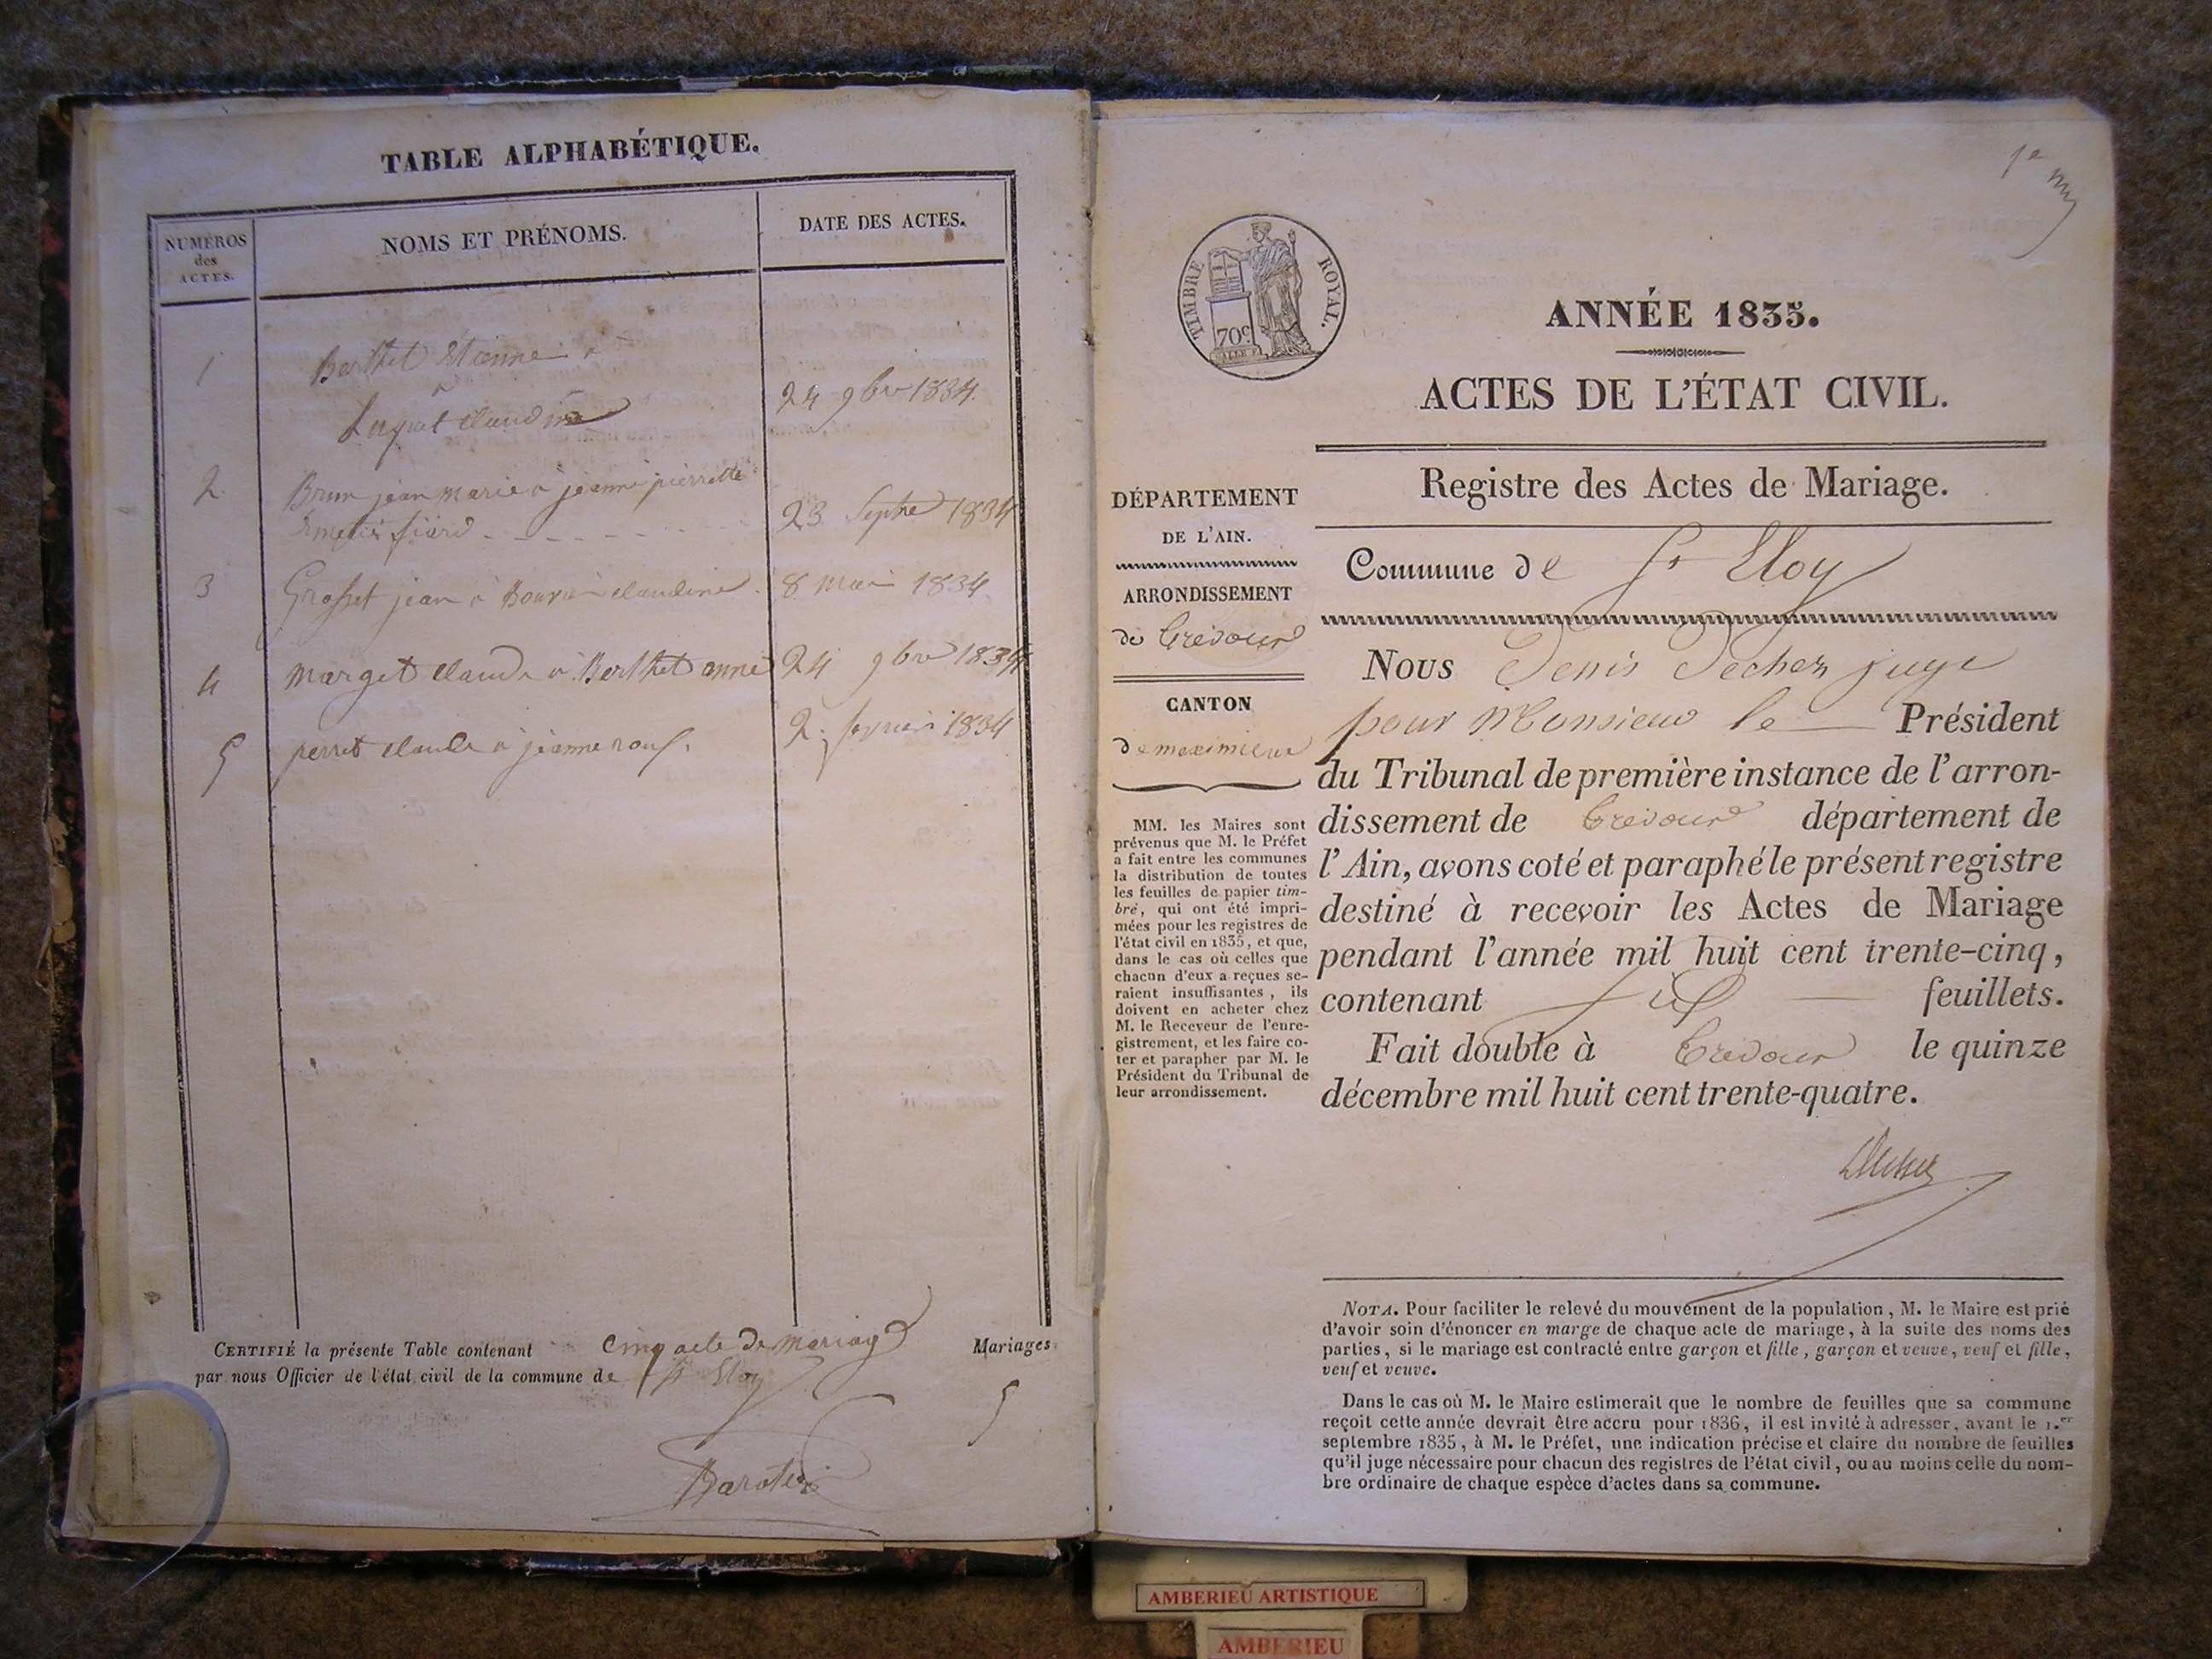 TABLE ALPHABÉTIQUE.
NUMÉROS
des
ACTES.
NOMS ET PRÉNOMS.
DATE DES ACTES.
1
Berthet Etienne à
Luquet Claudine
24 9bre 1834.
2
Brun jean marie à jeanne pierrette
23 Septre 1834
3
Grosset jean à Bouvier claudine
8 mai 1834
4
marget claude à Berthet anne
24 9bre 1834
5
perret claude à jeanne
2 fevrier 1834
CERTIFIÉ la présente Table contenant Cinq acte De mariage Mariages
par nous Officier de l'état civil de la commune de St Eloy
5
1e
TIMBRE ROYAL.
70c
ANNÉE 1835.
ACTES DE L'ÉTAT CIVIL.
Registre des Actes de Mariage.
DÉPARTEMENT
DE L'AIN.
ARRONDISSEMENT
de Trévoux
CANTON
de meximieux
MM. les Maires sont
prévenus que M. le Préfet
a fait entre les communes
la distribution de toutes
les feuilles de papier tim-
bré, qui ont été impri-
mées pour les registres de
l'état civil en 1835, et que,
dans le cas où celles que
chacun d'eux a reçues se-
raient insuffisantes, ils
doivent en acheter chez
M. le Receveur de l'enre-
gistrement, et les faire co-
ter et parapher par M. le
Président du Tribunal de
leur arrondissement.
Commune de St Eloy
Nous Denis juge
pour Monsieur le Président
du Tribunal de première instance de l'arron-
dissement de Trévoux département de
l'Ain, avons coté et paraphé le présent registre
destiné à recevoir les Actes de Mariage
pendant l'année mil huit cent trente-cinq,
contenant six feuillets.
Fait double à Trévoux le quinze
décembre mil huit cent trente-quatre.
NOTA. Pour faciliter le relevé du mouvement de la population, M. le Maire est prié
d'avoir soin d'énoncer en marge de chaque acte de mariage, à la suite des noms des
parties, si le mariage est contracté entre garçon et fille, garçon et veuve, veuf et fille,
veuf et veuve.
Dans le cas où M. le Maire estimerait que le nombre de feuilles que sa commune
reçoit cette année devrait être accru pour 1836, il est invité à adresser, avant le 1.er
septembre 1835, à M. le Préfet, une indication précise et claire du nombre de feuilles
qu'il juge nécessaire pour chacun des registres de l'état civil, ou au moins celle du nom-
bre ordinaire de chaque espèce d'actes dans sa commune.
AMBERIEU ARTISTIQUE
AMBERIEU